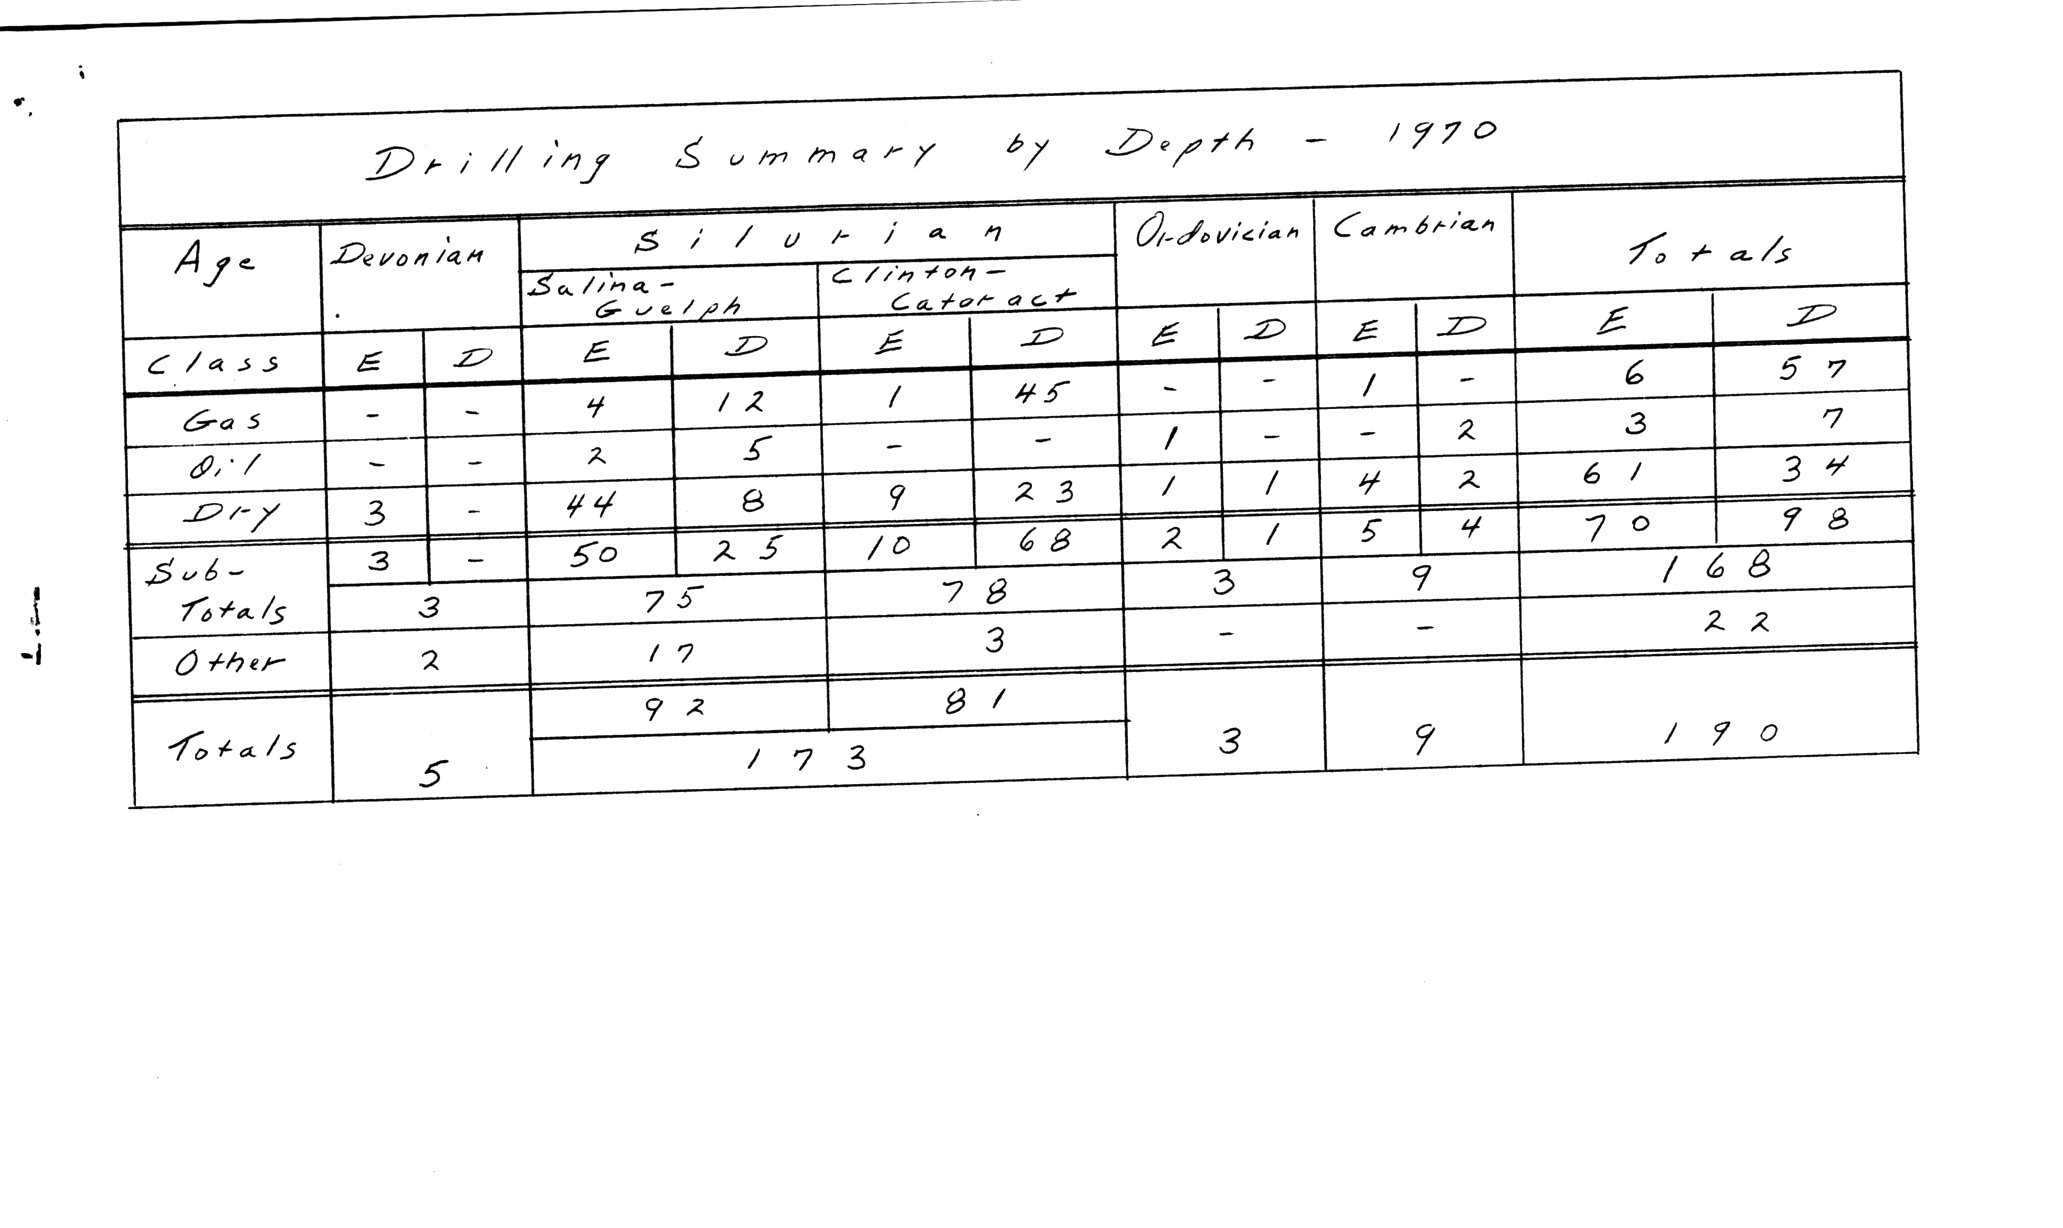 Drilling Summary by Depth - 1970
Age Devonian Silurian Ordovician Cambrian Totals
Salina- Clinton-
Guelph Cataract
Class E D E D E D E D E D E D
Gas - - 4 12 1 45 - - 1 - 6 57
Oil - - 2 5 - - 1 - - 2 3 7
Dry 3 - 44 8 9 23 1 1 4 2 61 34
Sub- 3 - 50 25 10 68 2 1 5 4 70 98
Totals 3 75 78 3 9 168
Other 2 17 3 - - 22
92 81
Totals 5 173 3 9 190